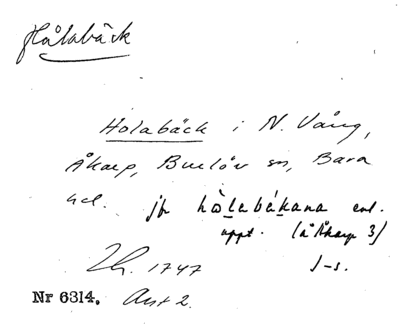 Hålabäck
Holabäck i N. Vång,
Åkarp, Burlöv sn, Bara
hd. jfr hòlabákana enl.
uppt. (å Åkarp 3)
J-s.
Lh. 1747
Nr 6314. Avs 2.